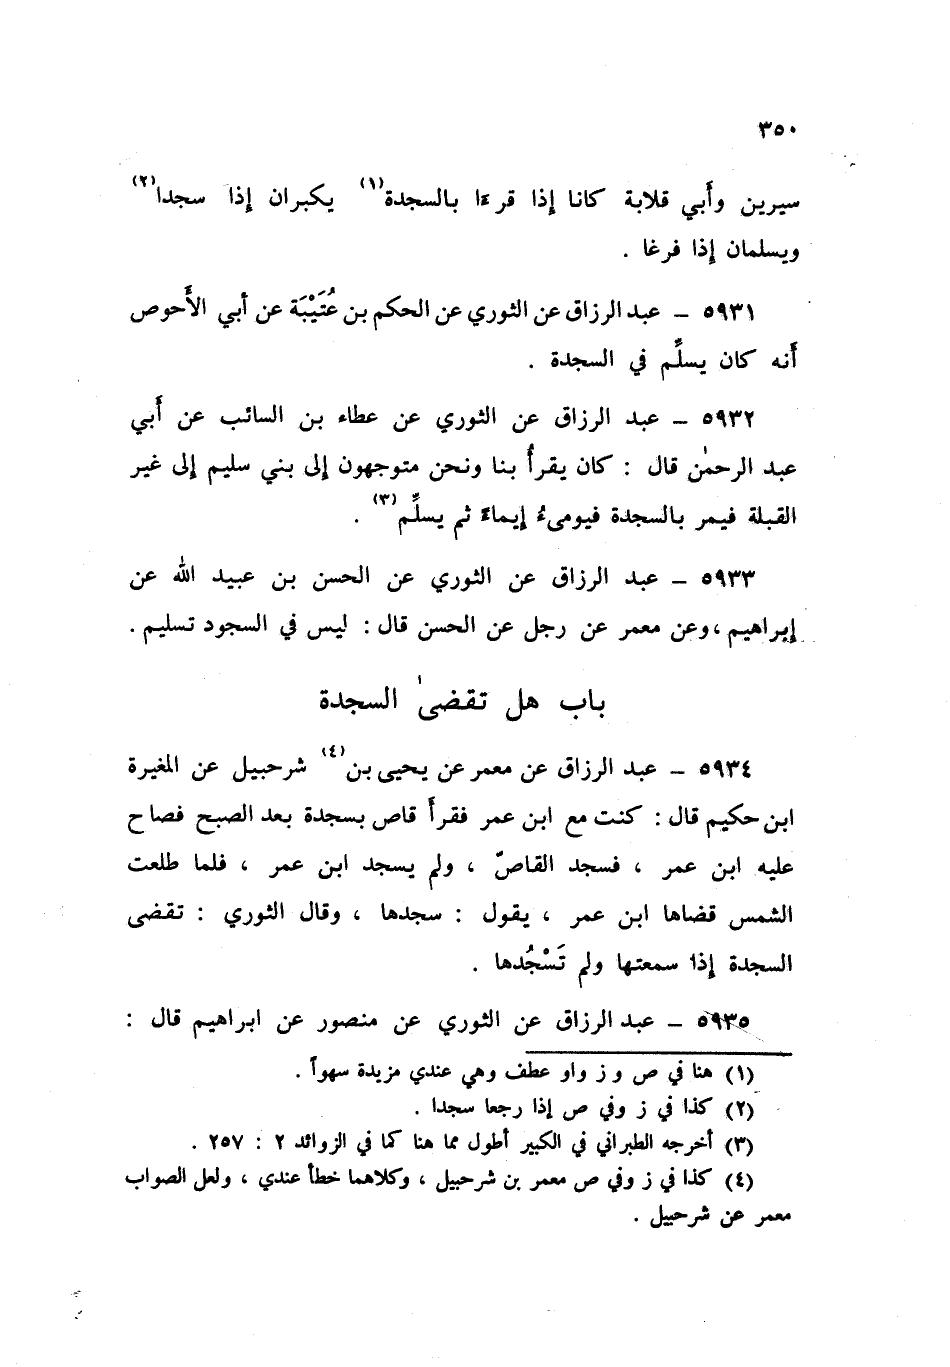 ٣٥٠
سيرين وأَبي قلابة كانا إذا قرءا بالسجدة(١) يكبران إذا سجدا(٢)
ويسلمان إذا فرغا .
٥٩٣١ – عبد الرزاق عن الثوري عن الحكم بن عُتَيْبَة عن أبي الأَحوص
أَنه كان يسلِّم في السجدة .
٥٩٣٢ – عبد الرزاق عن الثوري عن عطاء بن السائب عن أَبي
عبد الرحمٰن قال : كان يقرأُ بنا ونحن متوجهون إلى بني سليم إلى غير
القبلة فيمر بالسجدة فيومىءُ إيماءً ثم يسلِّم(٣) .
٥٩٣٣ – عبد الرزاق عن الثوري عن الحسن بن عبيد الله عن
إبراهيم ، وعن معمر عن رجل عن الحسن قال : ليس في السجود تسليم .
باب هل تقضىٰ السجدة
٥٩٣٤ – عبد الرزاق عن معمر عن يحيى بن(٤) شرحبيل عن المغيرة
ابن حكيم قال : كنت مع ابن عمر فقرأَ قاص بسجدة بعد الصبح فصاح
عليه ابن عمر ، فسجد القاصّ ، ولم يسجد ابن عمر ، فلما طلعت
الشمس قضاها ابن عمر ، يقول : سجدها ، وقال الثوري : تقضى
السجدة إذا سمعتها ولم تَسْجُدها .
٥٩٣٥ – عبد الرزاق عن الثوري عن منصور عن ابراهيم قال :
(١) هنا في ص و ز واو عطف وهي عندي مزيدة سهواً .
(٢) كذا في ز وفي ص إذا رجعا سجدا .
(٣) أخرجه الطبراني في الكبير أطول مما هنا كما في الزوائد ٢ : ٢٥٧ .
(٤) كذا في ز وفي ص معمر بن شرحبيل ، وكلاهما خطأ عندي ، ولعل الصواب
معمر عن شرحبيل .